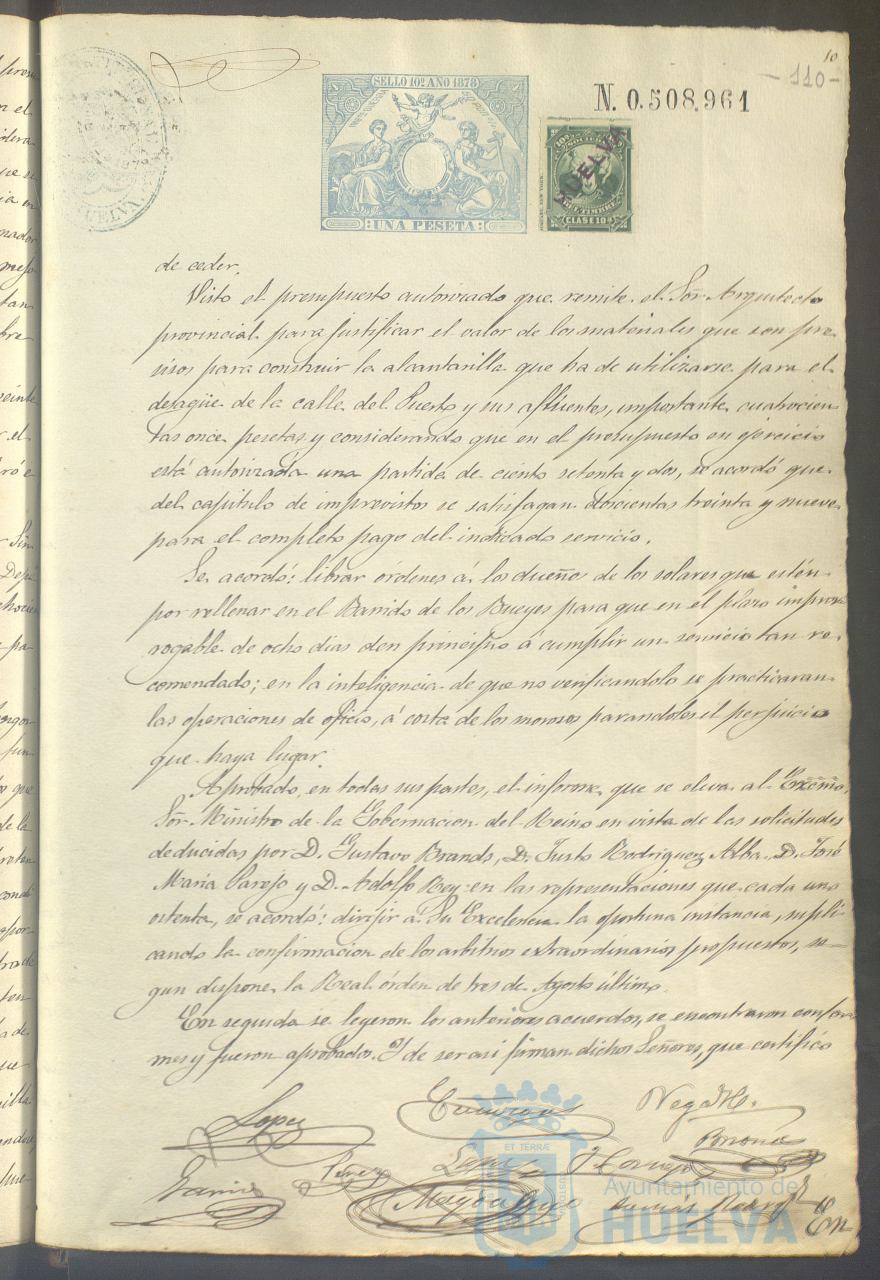 10
-110-
SELLO 10º AÑO 1878
UNA PESETA
N. 0.508.961
HUELVA
CLASE 10ª
HUELVA
de ceder.
Visto el presupuesto autorizado que remite el Sor. Arquitecto
provincial para justificar el valor de los materiales que son pre-
cisos para construir la alcantarilla que ha de utilizarse para el
desagüe de la calle del Puerto y sus afluentes, importante cuatrocien-
tas once pesetas y considerando que en el presupuesto en ejercicio
está autorizada una partida de ciento setenta y dos, se acordó que
del capítulo de imprevistos se satisfagan doscientas treinta y nueve
para el completo pago del indicado servicio.
Se acordó: librar órdenes á los dueños de los solares que estén
por rellenar en el Barrido de los Bueyes para que en el plazo impror-
rogable de ocho dias den principio á cumplir un servicio tan re-
comendado; en la inteligencia de que no verificandolo se practicaran
las operaciones de oficio, á costa de los morosos parandoles el perjuicio
que haya lugar.
Aprobado, en todas sus partes, el informe que se eleva al Excmo.
Sor. Ministro de la Gobernacion del Reino en vista de las solicitudes
deducidas por D. Gustavo Brands, D. Justo Rodriguez Alba, D. José
María Parejo y D. Adolfo Rey en las representaciones que cada uno
ostenta, se acordó: dirijir a Su Excelencia la oportuna instancia, supli-
cando la confirmacion de los arbitrios extraordinarios propuestos, se-
gun dispone la Real órden de tres de Agosto último.
En seguida se leyeron los anteriores acuerdos, se encontraron confor-
mes y fueron aprobados. Y de ser asi firman dichos Señores, que certifico
Lopez
Perez
En
ET TERRÆ
Ayuntamiento de
HUELVA